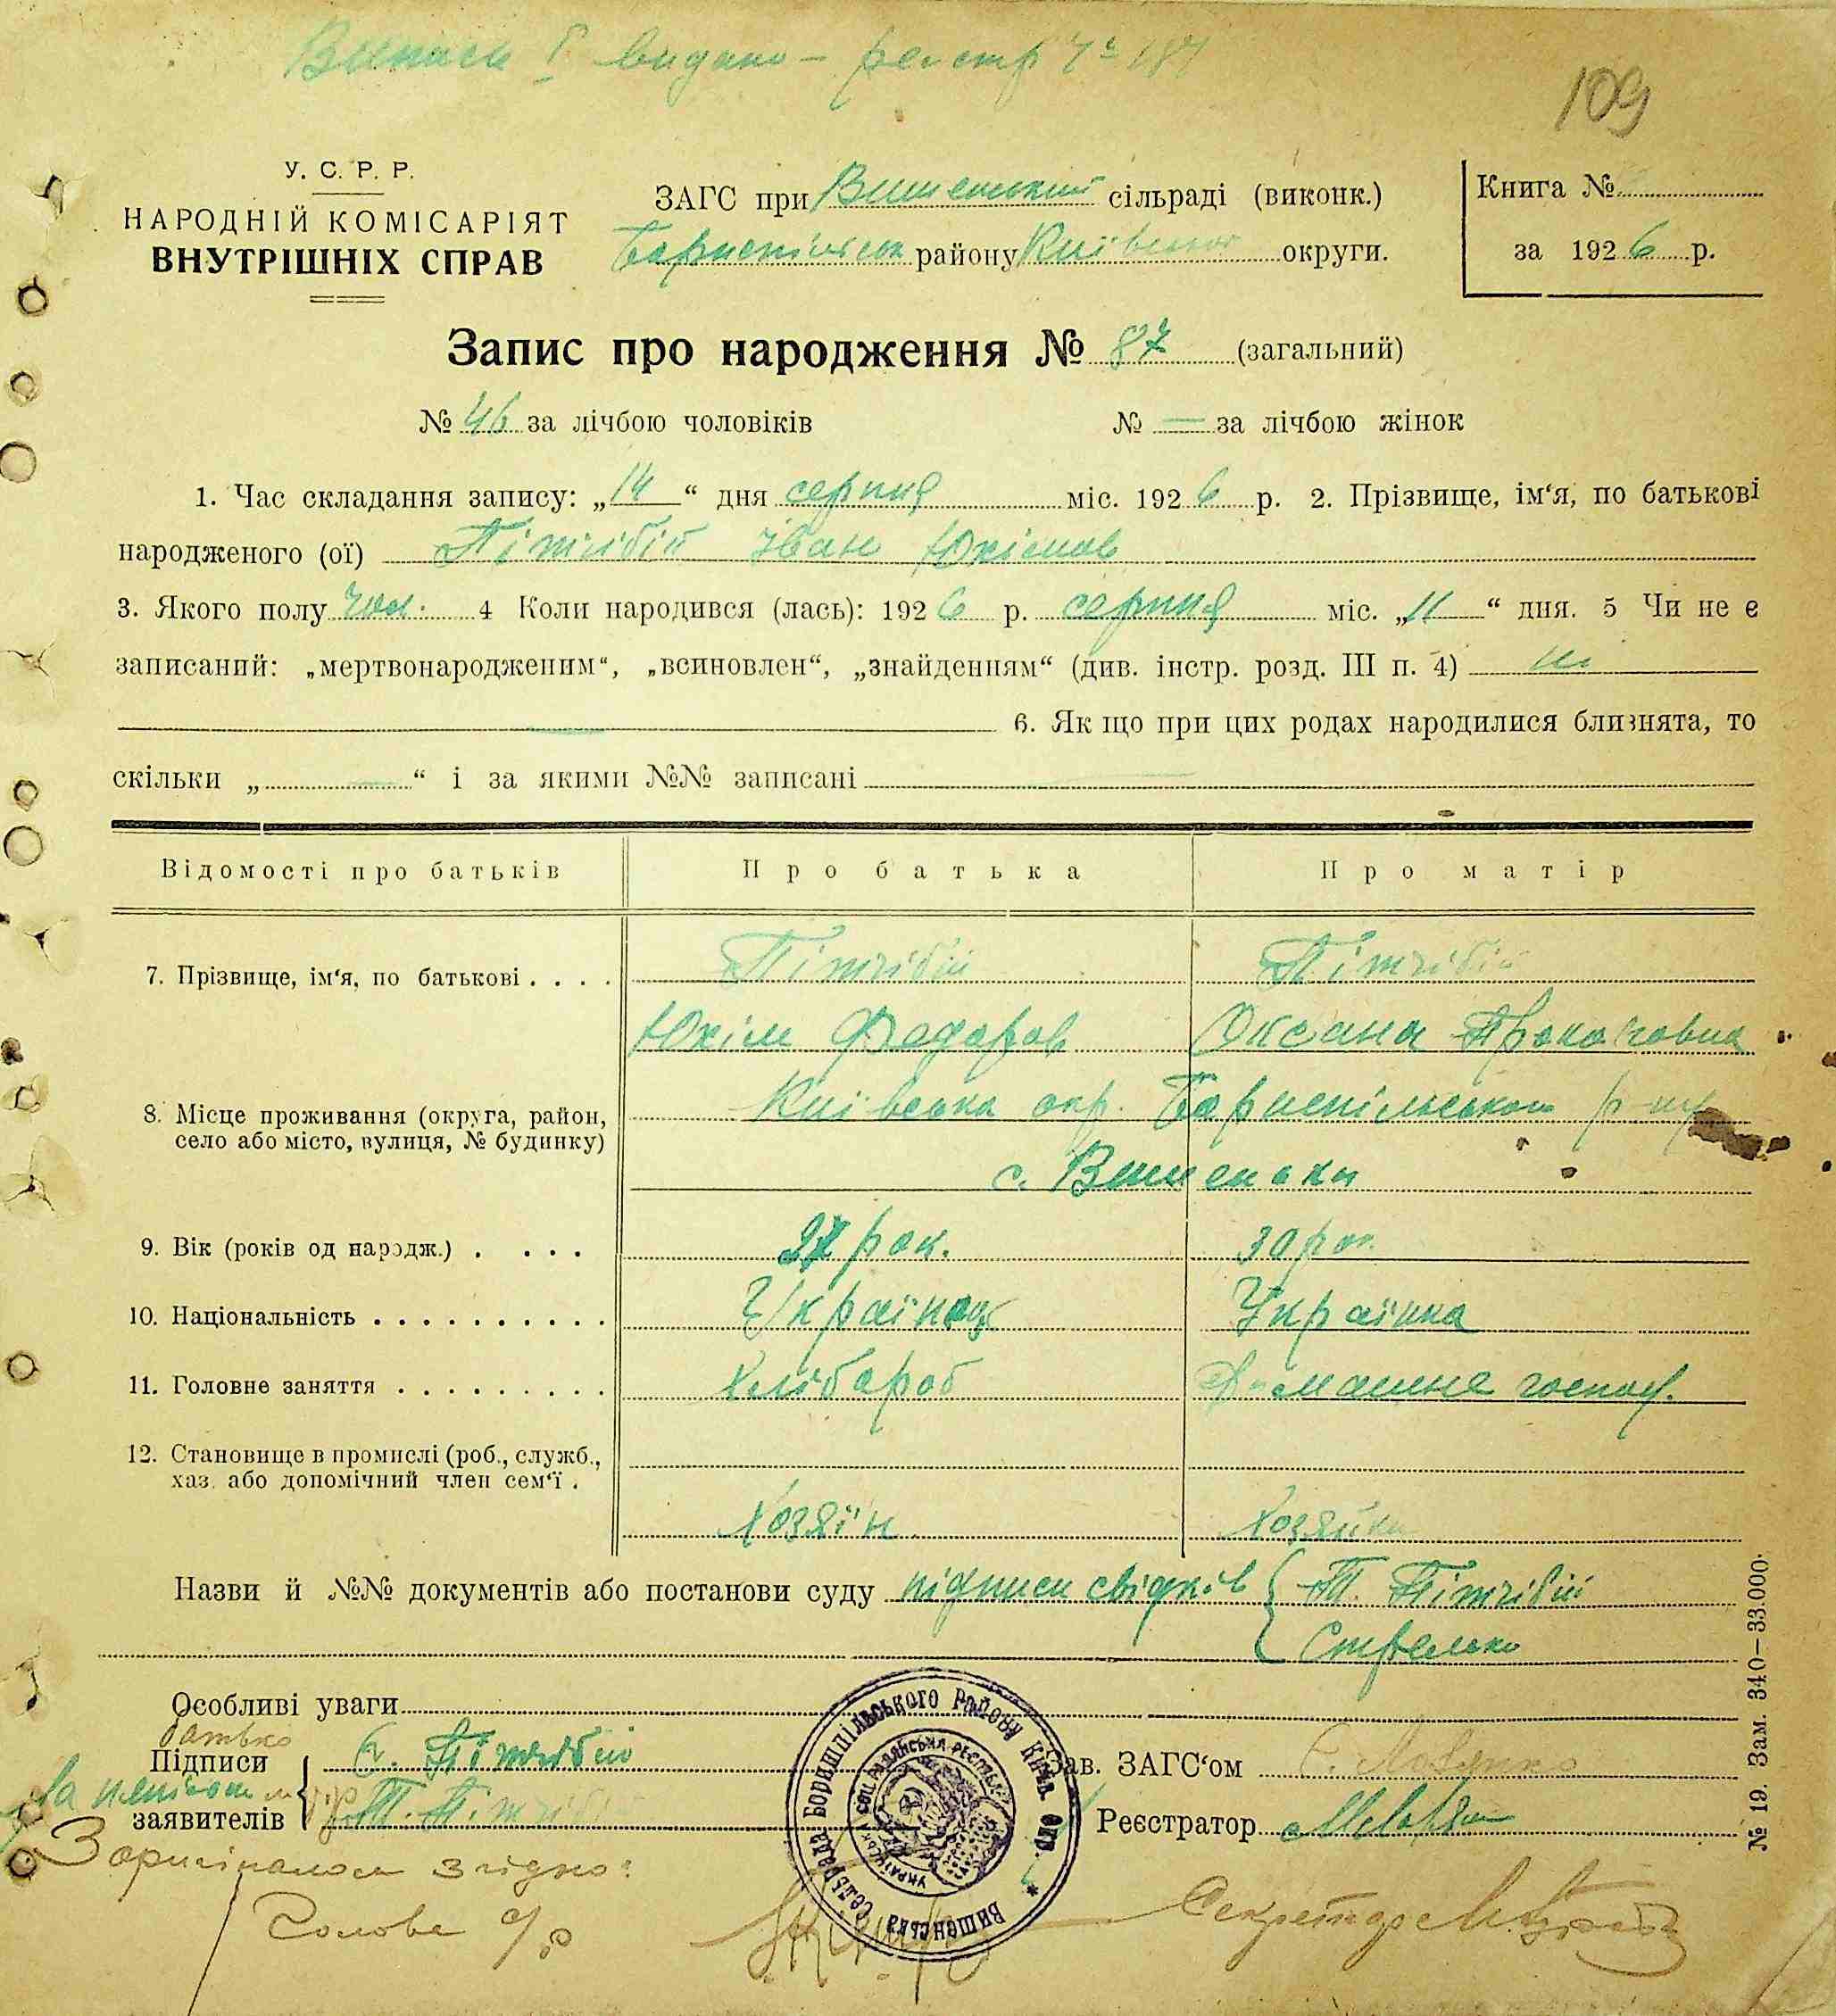 Випись І видано – реєстр № 187
109
У. С. Р. Р.
НАРОДНІЙ КОМІСАРІЯТ
ВНУТРІШНІХ СПРАВ
ЗАГС при Вишеньський сільраді (виконк.)
району Київської округи.
Книга №
за 1926 р.
Запис про народження № 87 (загальний)
№ 46 за лічбою чоловіків № — за лічбою жінок
1. Час складання запису: „14“ дня серпня міс. 1926 р. 2. Прізвище, ім‘я, по батькові
народженого (ої) Пітчібій Іван Юхімов
3. Якого полу чол. 4 Коли народився (лась): 1926 р. серпня міс. „11“ дня. 5 Чи не є
записаний: „мертвонародженим“, „всиновлен“, „знайденням“ (див. інстр. розд. III п. 4) ні
6. Як що при цих родах народилися близнята, то
скільки „—“ і за якими №№ записані —
Відомості про батьків Про батька Про матір
7. Прізвище, ім‘я, по батькові . . . . Пітчібій Пітчібій
Юхім Федоров Оксана Прокоповна
8. Місце проживання (округа, район, село або місто, вулиця, № будинку) Київська окр. Бориспільського р-ну
с. Вишеньки
9. Вік (років од народж.) . . . . 27 рок. 30 рок.
10. Національність . . . . . . . . . . Українець Українка
11. Головне заняття . . . . . . . . . Хлібороб Домашнє господ.
12. Становище в промислі (роб., служб.,
хаз. або допомічний член сем‘ї .
Хозяїн Хозяйка
Назви й №№ документів або постанови суду підписи свідків { Т. Пітчібій
Стрелько
Особливі уваги
батько
Підписи Є. Пітчібій Зав. ЗАГС‘ом
заявителів Т. Пітчібій Реєстратор
Вишенська Сельрада Боришпільського Району Київ. Окр.
УКРАЇНСЬКА СОЦ. РАДЯНСЬКА РЕСПУБЛІКА
З оригіналом згідно:
Голова с/р Секретар
№ 19. Зам. 340—33.000.